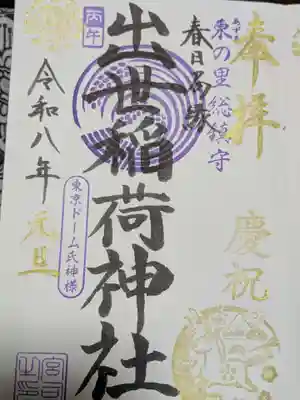 奉拝
慶祝
東の里総鎮守
春日局縁
出世稲荷神社
丙午
東京ドーム氏神様
令和八年
元旦